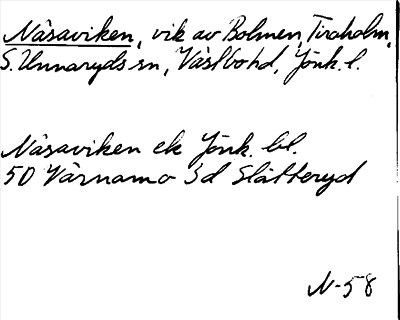 Nåsaviken, vik av Bolmen, Tiraholm,
S. Unnaryds sn, Västbo hd, Jönk. l.
Nåsaviken ek Jönk. bl.
5D Värnamo 3d Slätteryd
N-58